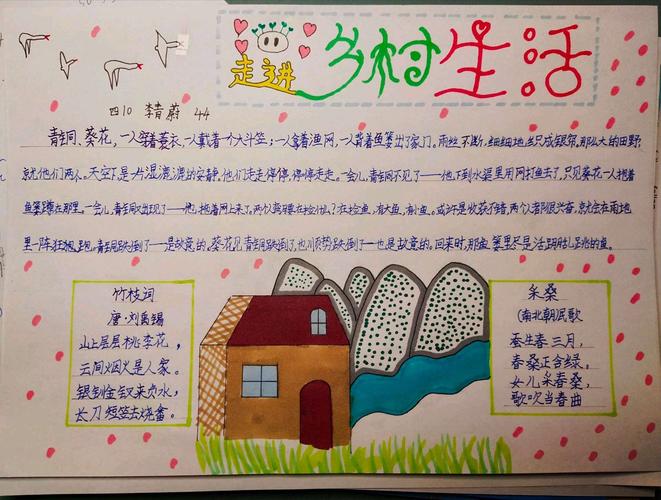 走进乡村生活
四10 李青蔚 44
青铜、葵花,一人穿着蓑衣,一人戴着一个大斗笠;一人拿着渔网,一人背着鱼篓出了家门。雨丝不断,细细地丝只成银帘,那么大的田野,
就他们两个。天空下是一片湿漉漉的安静,他们走走停停,停停走走。一会儿,青铜不见了——他下到水渠里用网打鱼去了,只见葵花一人抱着
鱼篓蹲在那里。一会儿,青铜又出现了——他拖着网上来了。两个人在捡什么?在捡鱼,有大鱼,有小鱼。或许是收获不错,两个人都很兴奋,就会在雨地
里一阵狂跑。青铜跌倒了——是故意的。葵花见青铜跌倒了,也顺势跌倒了——也是故意的。回来时,那鱼篓里尽是活蹦乱跳的鱼。
竹枝词
唐·刘禹锡
山上层层桃李花,
云间烟火是人家。
银钏金钗来负水,
长刀短笠去烧畬。
采桑
(南北朝)民歌
蚕生春三月,
春桑正含绿,
女儿采春桑,
歌吹当春曲